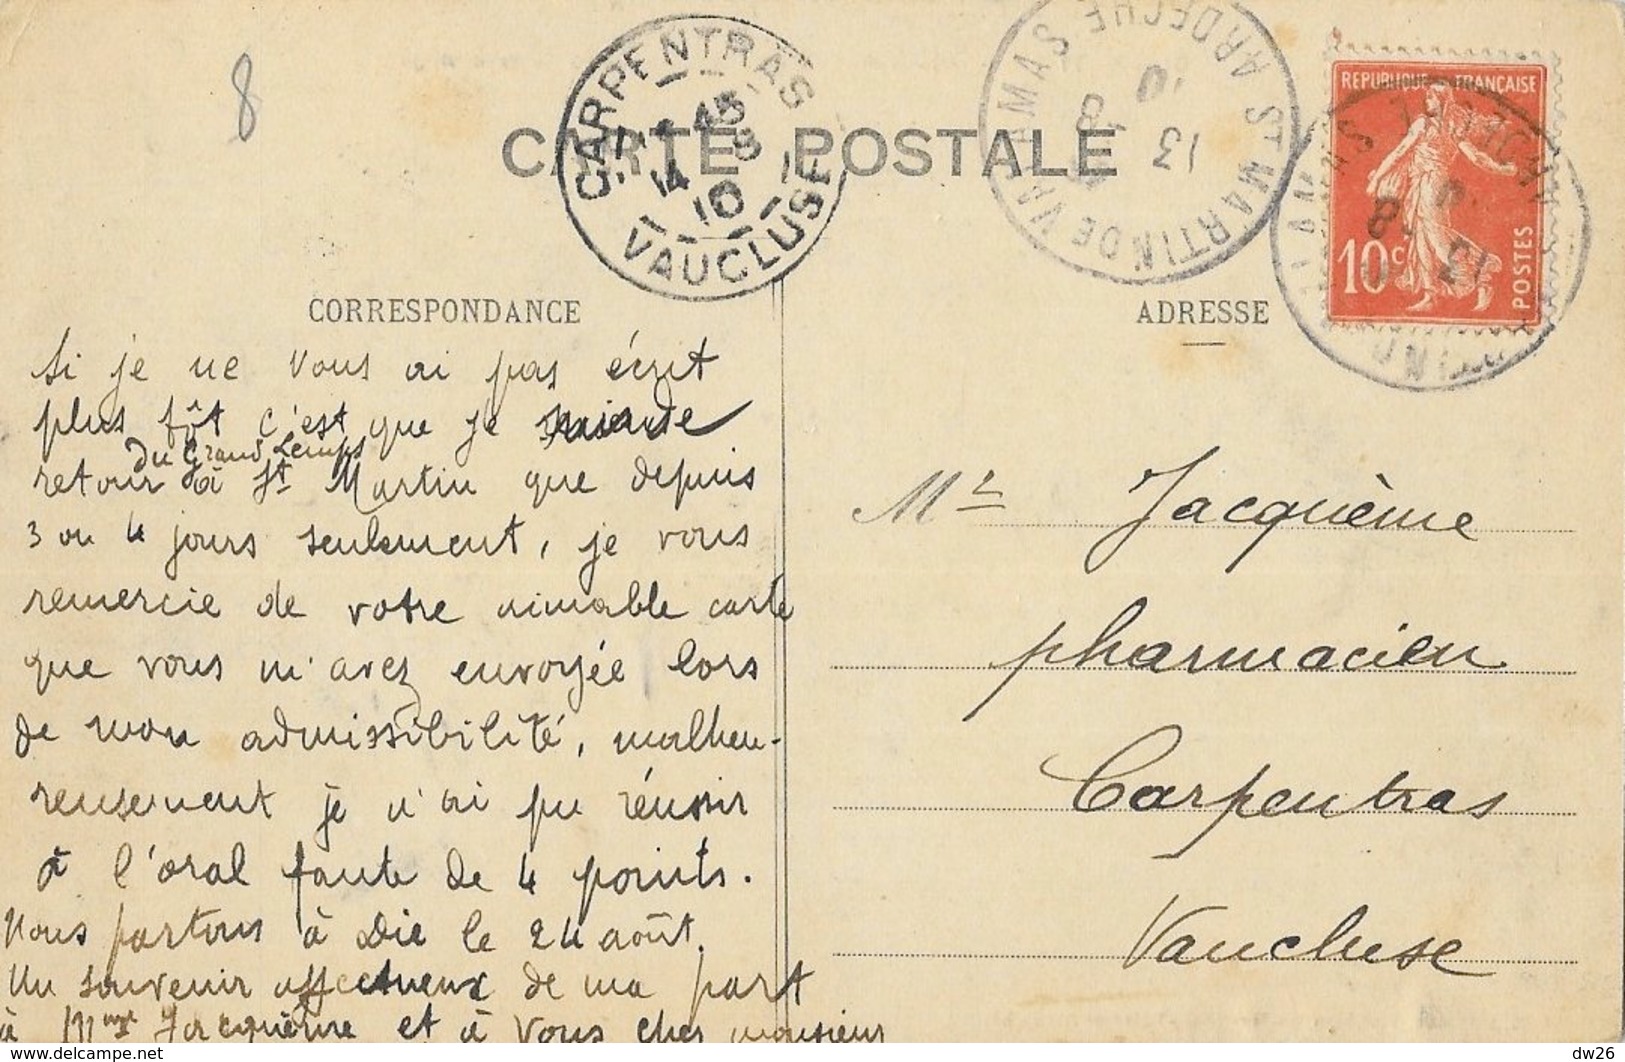 8
CARPENTRAS
14 8
10
VAUCLUSE
CARTE POSTALE
ST MARTIN DE VALAMAS
ARDECHE
13 8
10
REPUBLIQUE FRANÇAISE
10c
POSTES
CORRESPONDANCE
ADRESSE
Si je ne vous ai pas écrit
plus tôt c'est que je suis de
du Grand Lemps
retour à St Martin que depuis
3 ou 4 jours seulement, je vous
remercie de votre aimable carte
que vous m'avez envoyée lors
de mon admissibilité, malheu-
reusement je n'ai pu réussir
à l'oral faute de 4 points.
Nous partons à Die le 24 août.
Un souvenir affectueux de ma part
à Mme Jacquème et à vous cher monsieur
Mr Jacquème
pharmacien
Carpentras
Vaucluse
dw26
www.delcampe.net